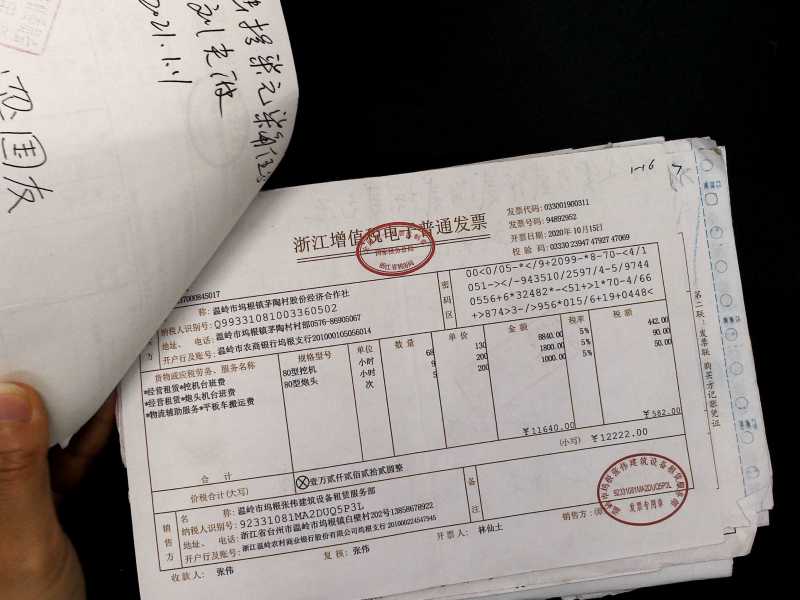 2021.1.1
1-16
浙江增值税电子普通发票
发票代码: 033001900311
发票号码: 94892952
开票日期: 2020年10月15日
校验码: 03330 23947 47927 47069
名称: 温岭市坞根镇茅陶村股份经济合作社
纳税人识别号: Q99331081003360502
地址、电话: 温岭市坞根镇茅陶村村部0576-86905067
开户行及账号: 温岭市农商银行坞根支行201000105056014
密码区
00<0/05-*</9+2099-*8-70-<4/1
051-></-943510/2597/4-5/9744
0556+6*32482*-<51+>1*70-4/66
+>874>3-/>956*015/6+19+0448<
货物或应税劳务、服务名称 规格型号 单位 数量 单价 金额 税率 税额
*经营租赁*挖机台班费 80型挖机 小时 68 130 8840.00 5% 442.00
*经营租赁*炮头机台班费 80型炮头 小时 9 200 1800.00 5% 90.00
*物流辅助服务*平板车搬运费 次 5 200 1000.00 5% 50.00
合计 ￥11640.00 ￥582.00
价税合计(大写) 壹万贰仟贰佰贰拾贰圆整 (小写) ￥12222.00
销售方
名称: 温岭市坞根张伟建筑设备租赁服务部
纳税人识别号: 92331081MA2DUQ5P3L
地址、电话: 浙江省台州市温岭市坞根镇白壁村202号13858678922
开户行及账号: 浙江温岭农村商业银行股份有限公司坞根支行 201000224547945
备注
收款人: 张伟 复核: 张伟 开票人: 林仙士 销售方:
第二联: 发票联 购买方记账凭证
92331081MA2DUQ5P3L
发票专用章